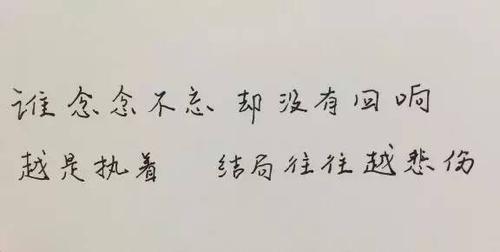 谁念念不忘 却没有回响
越是执着 结局往往越悲伤